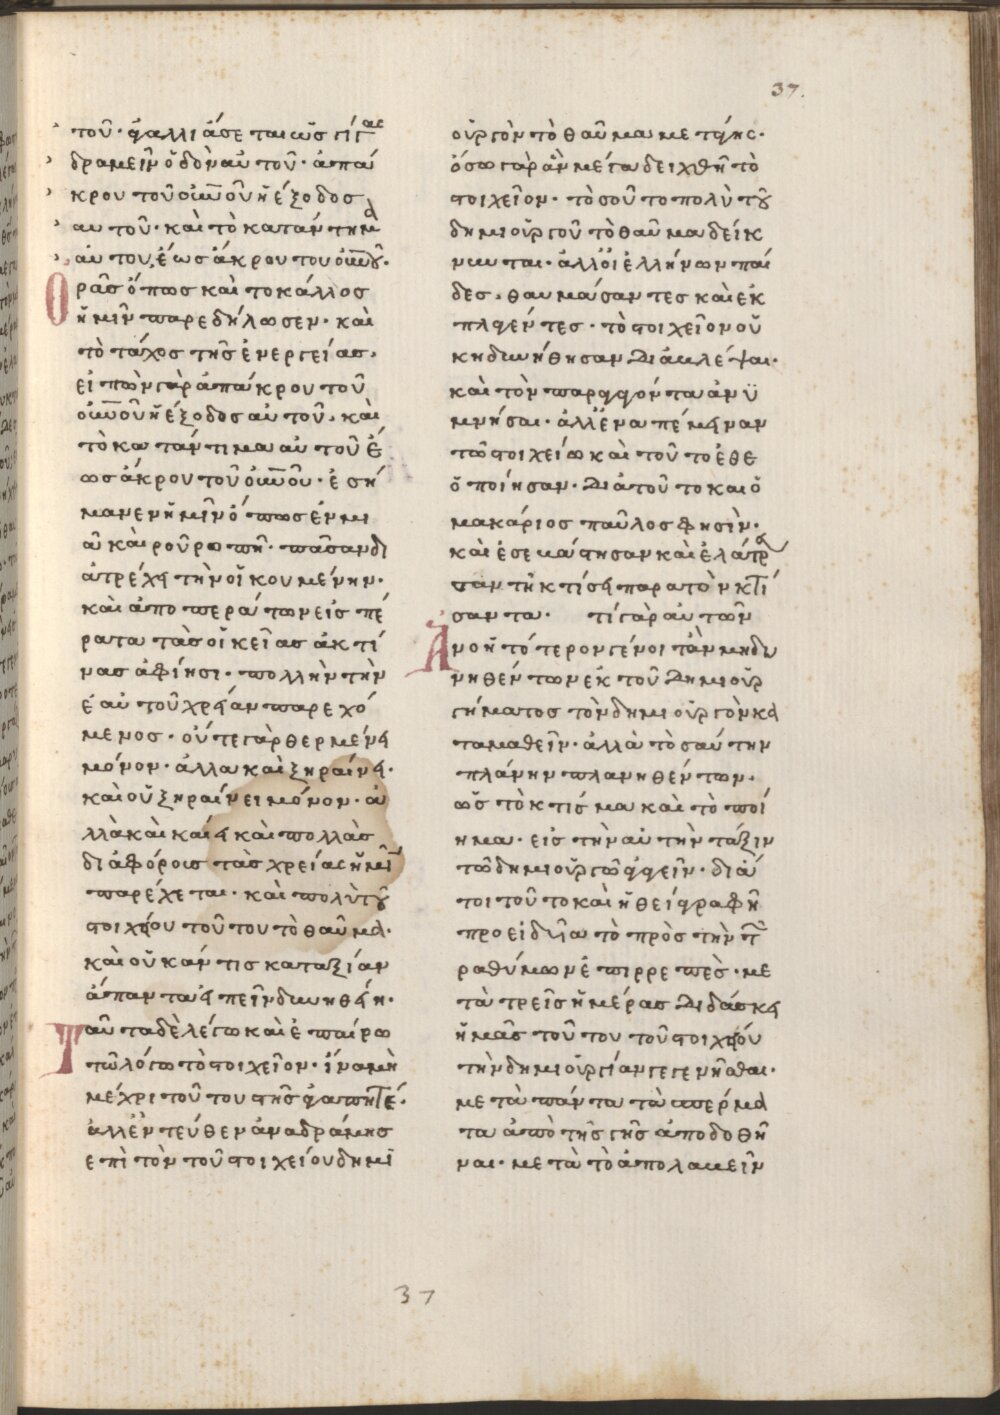 37.
τοῦ· ἀγαλλιάσεται ὡς γίγας
δραμεῖν ὁδὸν αὐτοῦ· ἀπ᾽ ἄ
κρου τοῦ οὐνοῦ ἡ ἔξοδος
αὐτοῦ· καὶ τὸ κατάντημα
αὐτοῦ, ἕως ἄκρου του οὐνοῦ·
Ὁρᾶς ὅπως καὶ το κάλλος
ἡμῖν παρεδήλωσεν· καὶ
τὸ τάχος τῆς ἐνεργείας·
εἰπὼν γὰρ ἀπ᾽ ἄκρου τοῦ
οὐνοῦ ἡ ἔξοδος αὐτοῦ· καὶ
τὸ κατάντιμα αὐτοῦ ἕ
ως ἄκρου τοῦ οὐνοῦ· ἐσή
μανεν ἡμῖν ὅπως ἐν μι
ᾶ καιροῦ ροπῆ· πᾶσαν δι
ατρέχει τὴν οἰκουμένην·
καὶ ἀπο περάτων εἰς πέ
ρατα τὰς οἰκείας ἀκτί
νας ἀφίησι· πολλὴν τὴν
ἑαυτοῦ χρείαν παρεχό
μενος· οὔτε γὰρ θερμένει
μόνον· ἀλλα καὶ ξηραίνει·
καὶ οὐ ξηραίνει μόνον· ἀ
λλὰ καὶ καίει καὶ πολλὰς
διαφόρους τὰς χρείας ἡμῖ
παρέχεται· καὶ πολὺ τοῦ
στοιχείου τοῦτου τὸ θαῦμα·
καὶ οὐκ ἄν τις καταξίαν
ἅπαντα εἰπεῖν δυνηθείη·
Ταῦτα δὲ λέγω καὶ ἐπαίρω
τῶ λόγω τὸ στοιχεῖον· ἵνα μὴ
μέχρι τοῦτου στῆς ἀγαπητέ·
ἀλλ᾽ ἐντεύθεν ἀναδράμης
επὶ τὸν τοῦ στοιχείου δημι
ουργὸν τὸ θαῦμα μετ
ὅσω γὰρ ἂν μέγα δειχθῆ τὸ
στοιχεῖον· τοσοῦτο πολὺ τοῦ
δημιουργοῦ τὸ θαῦμα δείκ
νυται· ἀλλ᾽ οἱ ἑλλήνων παῖ
δες· θαυμάσαντες καὶ ἐκ
πλαγέντες· τὸ στοιχεῖον οὐ
κ ηδυνήθησαν διαβλέψαι·
καὶ τὸν παραγαγόντα ἀνυ
μνῆσαι· ἀλλ᾽ ἐναπέμειναν
τῶ στοιχείω καὶ τοῦτο ἐθε
οποίησαν· διὰ τοῦτο και ὁ
μακάριος παῦλος φησὶν·
καὶ ἐσεβάσθησαν καὶ ἐλάτρευ
σαν τῆ κτίσει παρα τὸν κτί
σαντα· τί γὰρ αὐτῶν
Ἀνοητότερον γένοιτ᾽ ἂν μὴ δυ
νηθέντων ἐκ τοῦ δημιουρ
γήματος τὸν δημιουργὸν κα
ταμαθεῖν· ἀλλὰ τοσαύτην
πλάνην πλανηθέντων·
ὡς τὸ κτίσμα καὶ τὸ ποί
ημα· εἰς τὴν αὐτὴν τάξιν
τῶ δημιουργῶ ἀγαγεῖν· διά
τοι τοῦτο καὶ ἡ θεία γραφὴ
προειδυῖα τὸ πρὸς τὴν τῶ
ραθύμων ἐπιρρεπὲς· με
τὰ τρεῖς ἡμέρας διδάσκει
ἡμᾶς τοῦτου τοῦ στοιχείου
τὴν δημιουργίαν γεγενῆσθαι·
μετὰ πάντα τὰ σπέρμα
τα ἀπὸ τῆς γῆς ἀποδοθῆ
ναι· μετὰ τὸ ἀπολαβεῖν
37